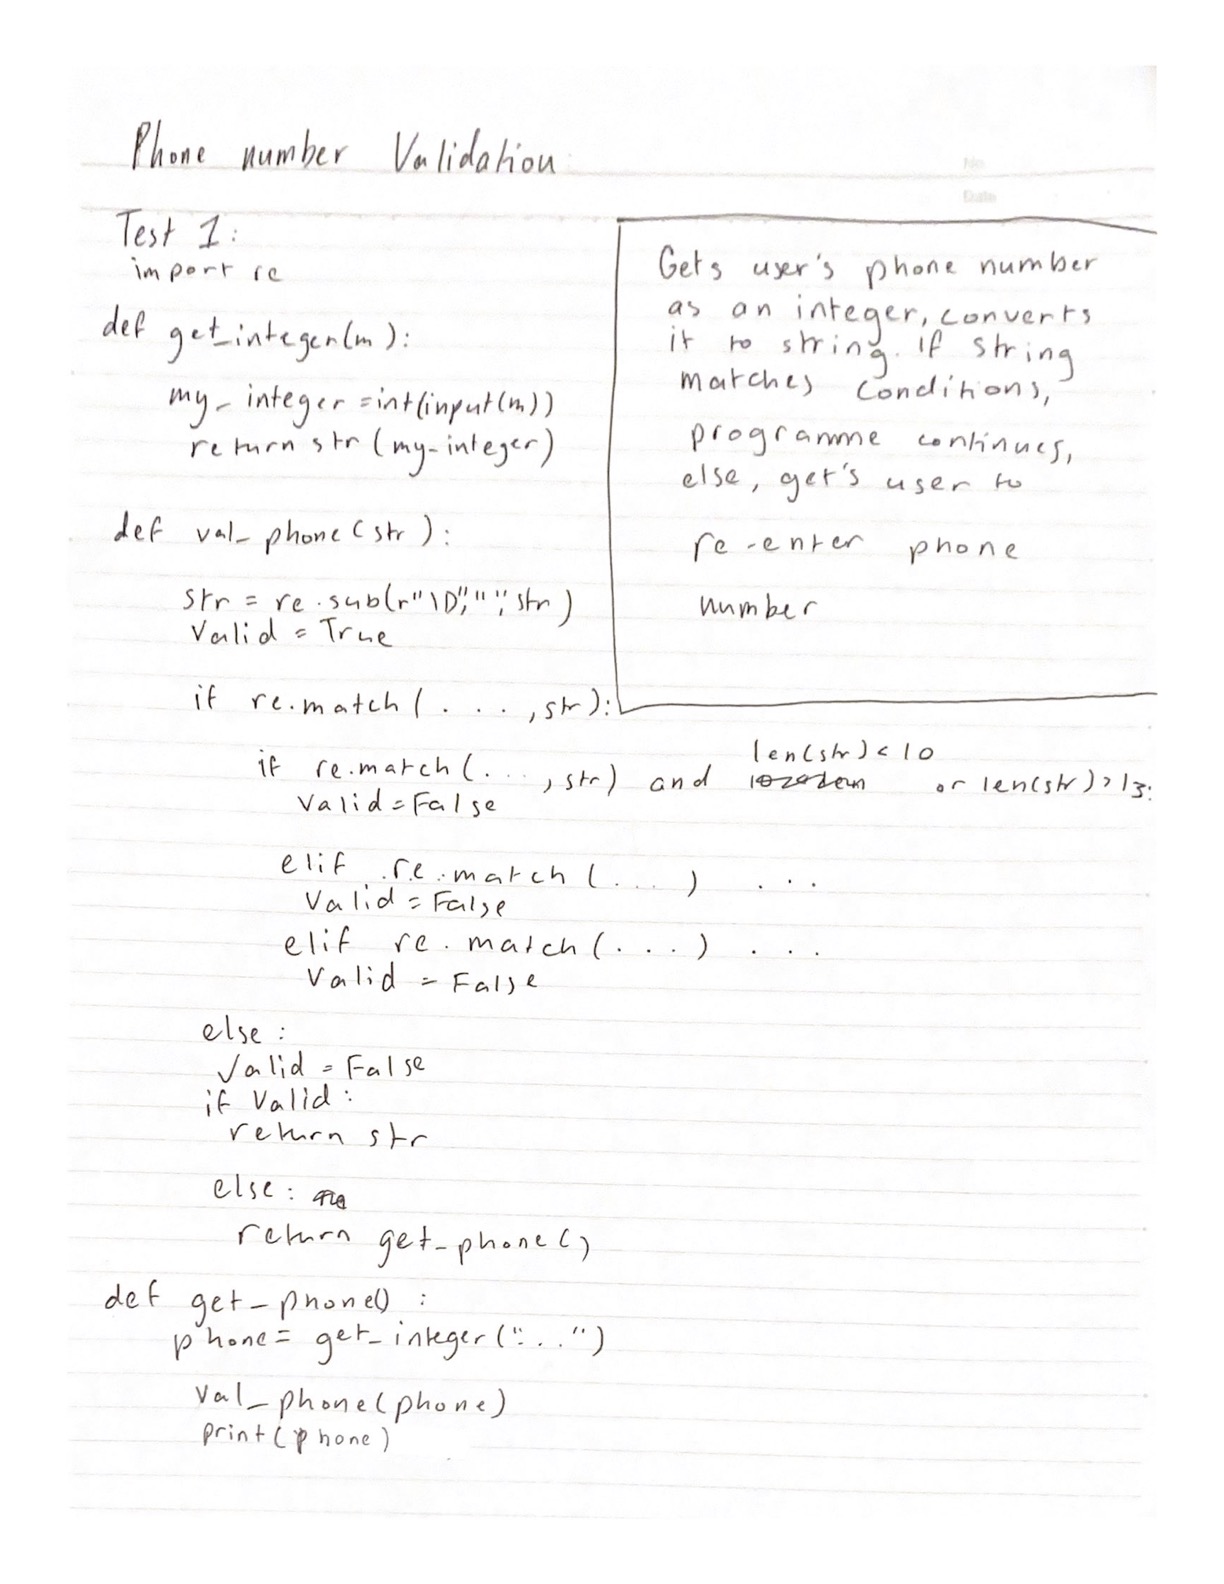 Phone number Validation
No.
Date
Test 1:
import re
def get_integer(m):
my_integer =int(input(m))
return str (my-integer)
def val_phone(str):
str = re.sub(r"\D","",str)
Valid = True
if re.match(...,str):
if re.match(...,str) and len(str)<10 or len(str)>13:
Valid=False
elif re.match(...) ...
Valid=False
elif re.match(...) ...
Valid = False
else:
Valid = False
if Valid:
return str
else:
return get_phone()
def get_phone():
phone= get_integer("...")
val_phone(phone)
print(phone)
Gets user's phone number
as an integer, converts
it to string. If string
matches conditions,
programme continues,
else, get's user to
re-enter phone
number